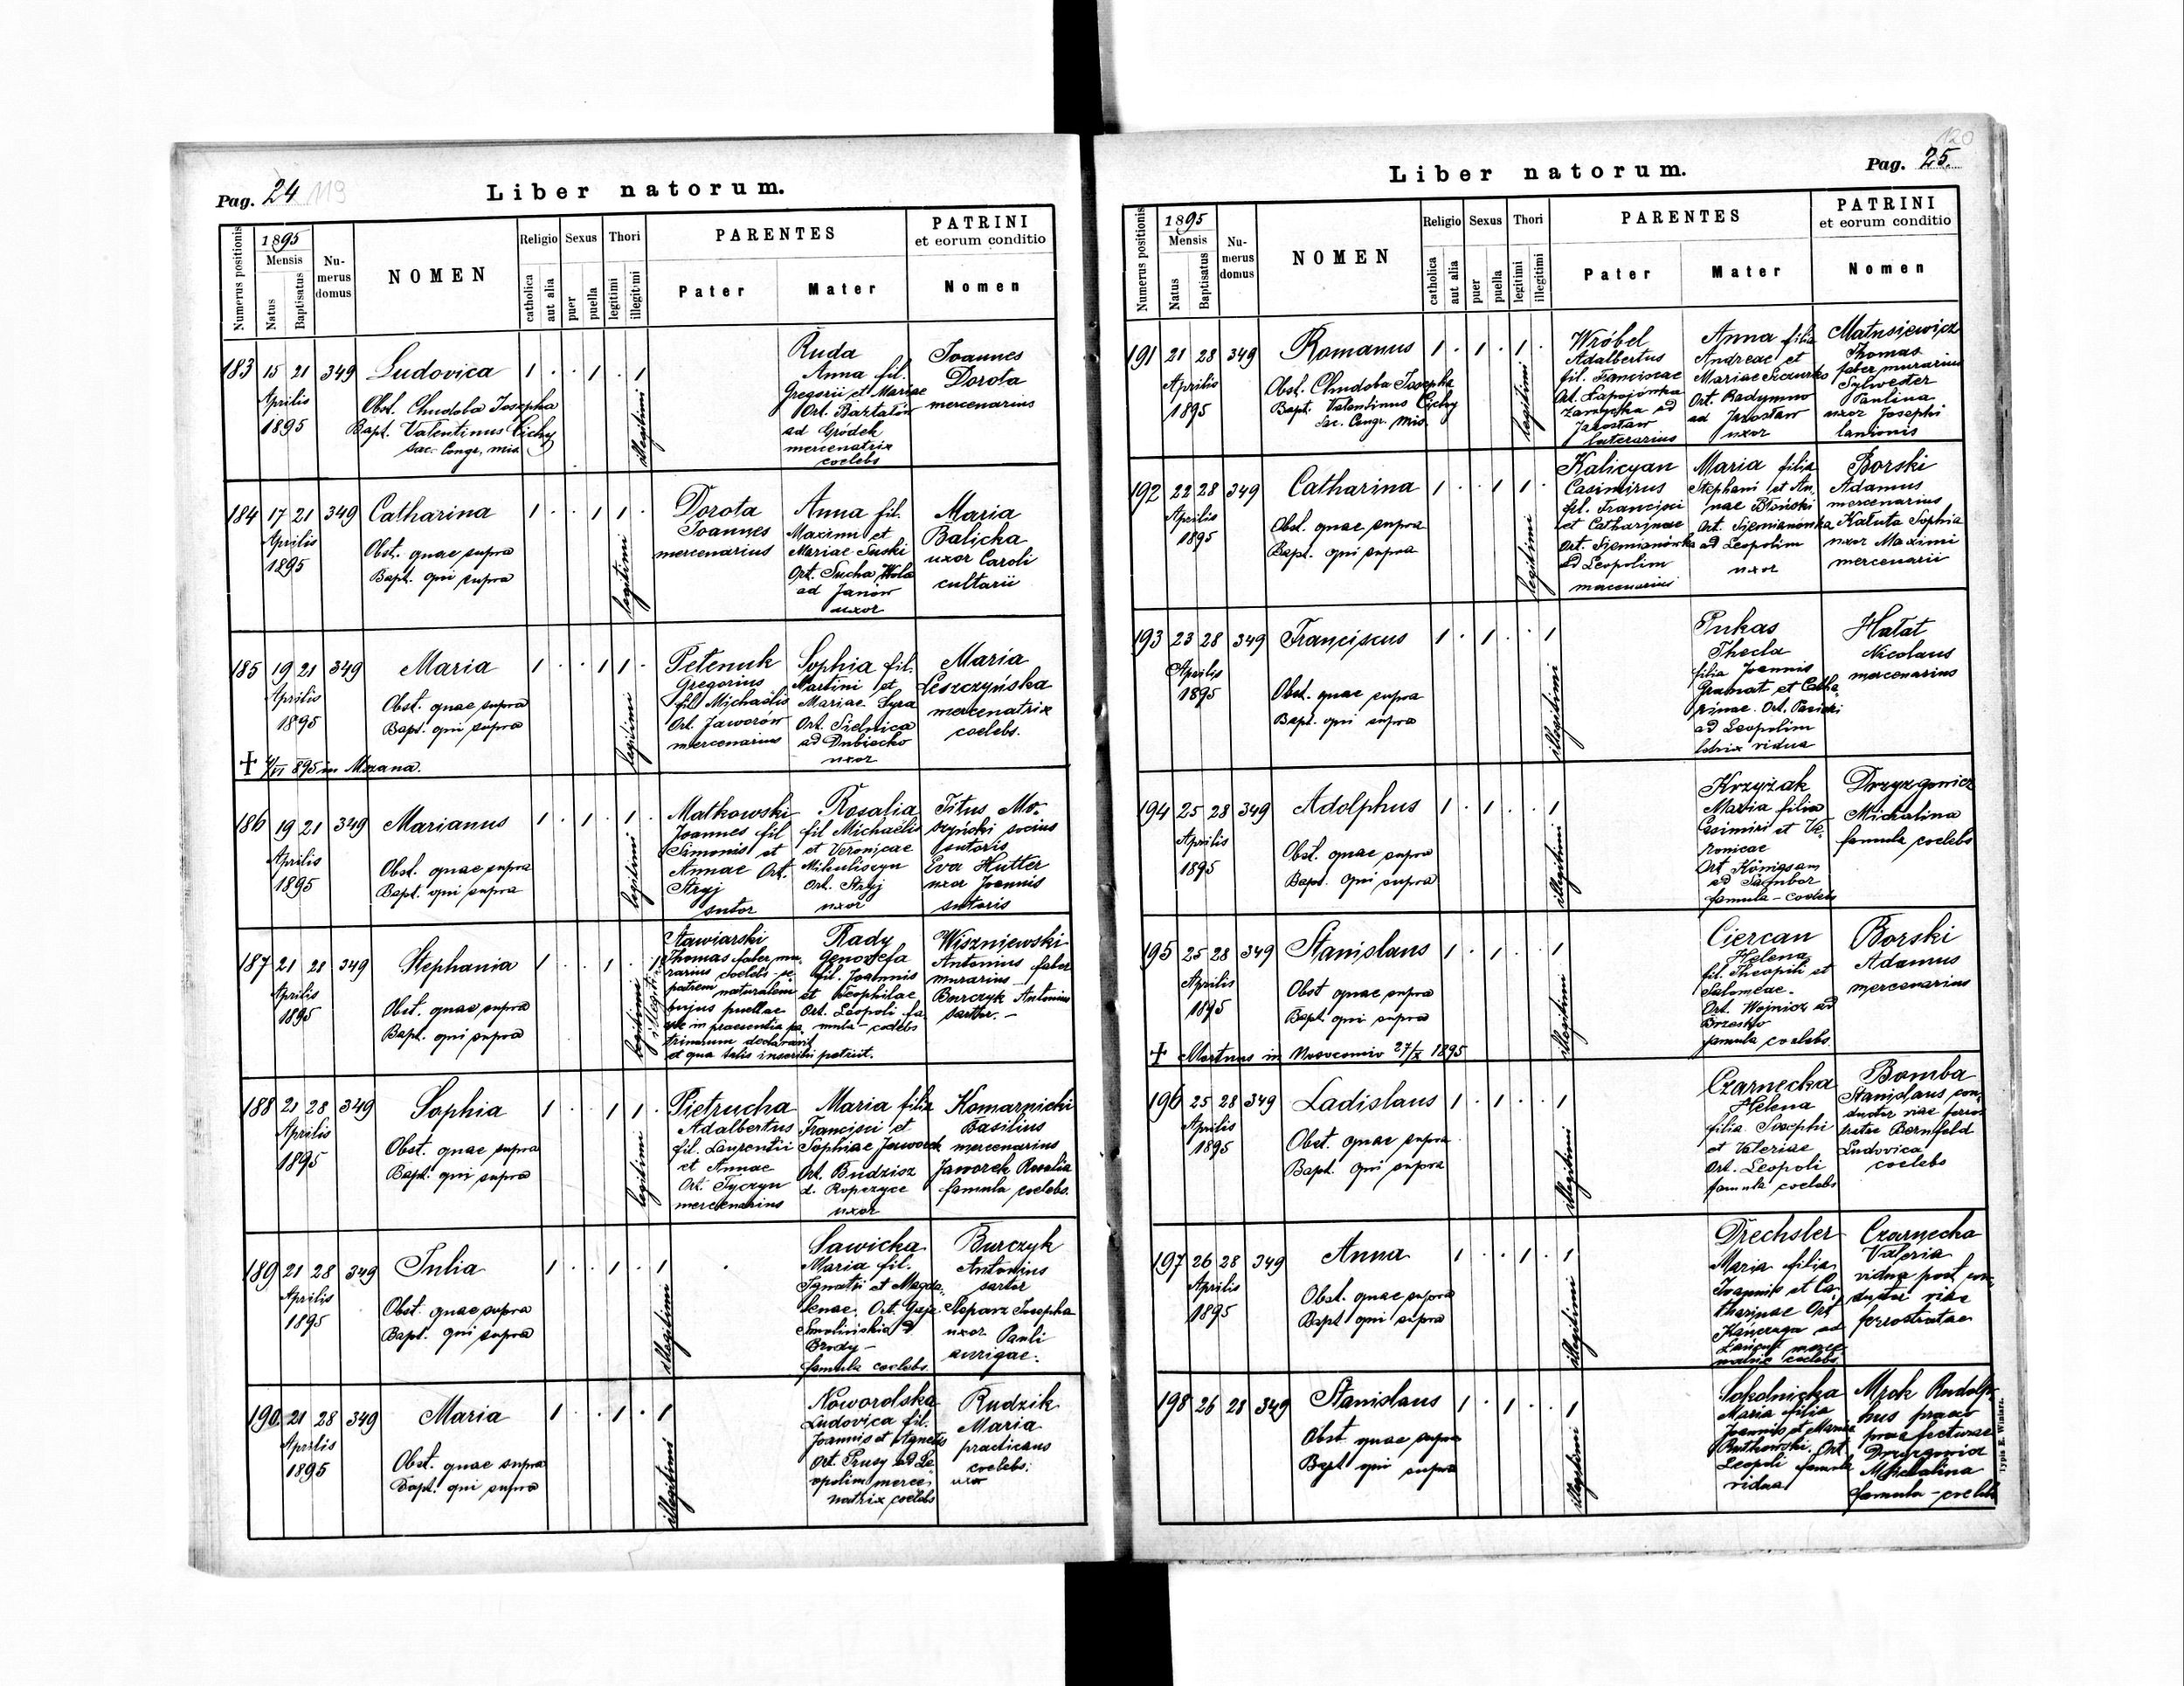 Pag. 24 119
Liber natorum.
Numerus positionis
1895
Mensis
Natus
Baptisatus
Nu-
merus
domus
NOMEN
Religio
catholica
aut alia
Sexus
puer
puella
Thori
legitimi
illegitimi
PARENTES
Pater
Mater
PATRINI
et eorum conditio
Nomen
183 15 21 349 Ludovica 1 . . 1 . 1
Aprilis
1895
Obst. Chudoba Josepha
Bapt. Valentinus Cichy
Sac. Congr. mis.
illegitimi
Ruda
Anna fil.
Gregorii et Mariae
Ort. Bartatów
ad Gródek
mercenatrix
coelebs
Joannes
Dorota
mercenarius
184 17 21 349 Catharina 1 . . 1 1 .
Aprilis
1895
Obst. quae supra
Bapt. qui supra
legitimi
Dorota
Joannes
mercenarius
Anna fil.
Maximi et
Mariae Suski
Ort. Sucha Wola
ad Janów
uxor
Maria
Balicka
uxor Caroli
cultarii
185 19 21 349 Maria 1 . . 1 1 .
Aprilis
1895
Obst. quae supra
Bapt. qui supra
+ 4/VI 895 in Mszana.
legitimi
Petenuk
Gregorius
fil Michaelis
Ort. Jaworów
mercenarius
Sophia fil.
Martini et
Mariae Syra
Ort. Sielnica
ad Dubiecko
uxor
Maria
Leszczyńska
mercenatrix
coelebs.
186 19 21 349 Marianus 1 . 1 . 1 .
Aprilis
1895
Obst. quae supra
Bapt. qui supra
legitimi
Matkowski
Joannes fil
Simonis et
Annae Ort.
Stryj
sutor
Rosalia
fil Michaëlis
et Veronicae
Mikuliszyn
Ort. Stryj
uxor
Titus Mo-
szyński socius
sutoris
Eva Hutter
uxor Joannis
sutoris
187 21 28 349 Stephania 1 . . 1 . 1
Aprilis
1895
Obst. quae supra
Bapt. qui supra
legitimi
illegiti
Stawiarski
Thomas faber mu-
rarius coelebs se
patrem naturalem
hujus puellae
esse in praesentia pa-
trinorum declaravit
et qua talis inscribi petiit.
Rady
Genovefa
fil. Joannis
et Teophilae
Ort. Leopoli fa-
mula - coelebs
Wiszniewski
Antonius faber
murarius -
Burczyk Antonius
sartor. -
188 21 28 349 Sophia 1 . . 1 1 .
Aprilis
1895
Obst. quae supra
Bapt. qui supra
legitimi
Pietrucha
Adalbertus
fil. Laurentii
et Annae
Ort. Tyczyn
mercenarius
Maria filia
Francisci et
Sophiae Jaworek
Ort. Budzisz
d. Ropczyce
uxor
Komarnicki
Basilius
mercenarius
Jaworek Rosalia
famula coelebs.
189 21 28 349 Julia 1 . . 1 . 1
Aprilis
1895
Obst. quae supra
Bapt. qui supra
illegitimi
Sawicka
Maria fil.
Ignatii et Magda-
lenae. Ort. Gaje
Smolińskie ad
Brody -
famula coelebs.
Burczyk
Antonius
sartor
Josepha
uxor Pauli
aurigae.
190 21 28 349 Maria 1 . . 1 . 1
Aprilis
1895
Obst. quae supra
Bapt. qui supra
illegitimi
Noworolska
Ludovica fil.
Joannis et Agnetis
Ort. Prusy ad Le
opolim merce-
natrix coelebs
Rudzik
Maria
practicans
coelebs.
uxor
120
Pag. 25
Liber natorum.
Numerus positionis
1895
Mensis
Natus
Baptisatus
Nu-
merus
domus
NOMEN
Religio
catholica
aut alia
Sexus
puer
puella
Thori
legitimi
illegitimi
PARENTES
Pater
Mater
PATRINI
et eorum conditio
Nomen
191 21 28 349 Romanus 1 . 1 . 1 .
Aprilis
1895
Obst. Chudoba Josepha
Bapt. Valentinus Cichy
Sac. Congr. Mis.
legitimi
Wróbel
Adalbertus
fil. Franciscae
Ort. Łapajówka
ad
Jarosław
laterarius
Anna filia
Andreae et
Mariae
Ort. Radymno
ad Jarosław
uxor
Matusiewicz
Thomas
faber murarius
Sylwester
Paulina
uxor Josephi
lanionis
192 22 28 349 Catharina 1 . . 1 1 .
Aprilis
1895
Obst. quae supra
Bapt. qui supra
legitimi
Kalicyan
Casimirus
fil. Francisci
et Catharinae
Ort. Siemianówka
ad Leopolim
mercenarius
Maria filia
Stephani et An-
nae Błoński
Ort. Siemianówka
ad Leopolim
uxor
Borski
Adamus
mercenarius
Kałuta Sophia
uxor Maximi
mercenarii
193 23 28 349 Franciscus 1 . 1 . . 1
Aprilis
1895
Obst. quae supra
Bapt. qui supra
illegitimi
Pukas
Thecla
filia Joannis
Gramat et Catha-
rinae. Ort. Pasieki
ad Leopolim
lotrix vidua
Hałat
Nicolaus
mercenarius
194 25 28 349 Adolphus 1 . 1 . . 1
Aprilis
1895
Obst. quae supra
Bapt. qui supra
illegitimi
Krzyżak
Maria filia
Casimiri et Ve-
ronicae
Ort Königsau
ad Sambor
famula - coelebs
Drzyzgowicz
Michalina
famula coelebs
195 25 28 349 Stanislaus 1 . 1 . . 1
Aprilis
1895
Obst quae supra
Bapt. qui supra
+ Mortuus in Nosocomio 27/X 1895
illegitimi
Ciercan
Helena
fil. Theopili et
Salomeae.
Ort. Wojnicz ad
Brzesko
famula coelebs.
Borski
Adamus
mercenarius
196 25 28 349 Ladislaus 1 . 1 . . 1
Aprilis
1895
Obst. quae supra
Bapt. qui supra
illegitimi
Czarnecka
Helena
filia Josephi
et Valeriae
Ort. Leopoli
famula coelebs
Bomba
Stanislaus con-
ductor viae ferro-
tratae Bernfeld
Ludovica
coelebs
197 26 28 349 Anna 1 . . 1 . 1
Aprilis
1895
Obst. quae supra
Bapt qui supra
illegitimi
Drechsler
Maria filia
Joannis et Ca-
tharinae Ort
Kańczuga ad
Łańcut merce
natrix coelebs
Czarnecka
Valeria
vidua post con-
ductor viae
ferrostratae
198 26 28 349 Stanislaus 1 . 1 . . 1
Obst quae supra
Bapt qui supra
illegitimi
Sokolnicka
Maria filia
Joannis et Mariae
Rutkowski. Ort.
Leopoli famula
vidua
Mrok Rudolp-
hus praeco
praefecturae
Drzyzgowicz
Michalina
famula - coelebs
Typis E. Winiarz.